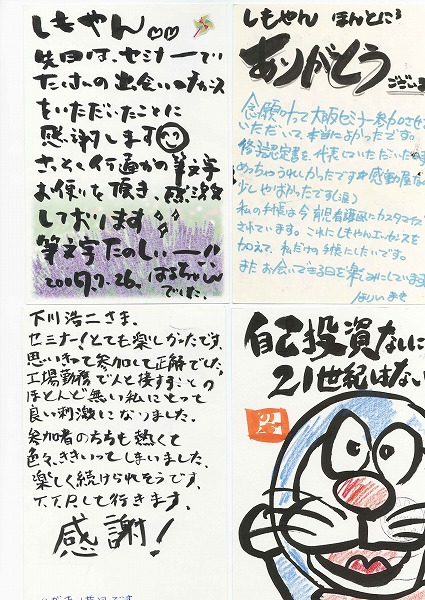 しもやん♡♡
先日は、セミナーで
たくさんの出会いのチャンス
をいただいたことに
感謝します
さっそく何通かの筆文字
お便りを頂き、感激
しております
筆文字たのしいー!!
2007.9.26. はるちゃん
でした。
しもやん ほんとに
ありがとう
ございま
念願かって大阪セミナー参加させ
いただいて、本当によかったです。
修了認定書を代表していただいた
めっちゃうれしかったです
少しやばかったです(涙)
私の手帳は今
されています。これにしもやんエッセンスを
加えて、私だけの手帳にしたいです。
またお会いできる日を楽しみにしています
下川浩二さま、
セミナー!とても楽しかったです、
思いきって参加して正解でした、
工場勤務で人と接することの
ほとんど無い私にとって
良い刺激になりました。
参加者のちも熱くて
色々、ききいってしまいました、
楽しく続けられそうです、
T.T.Pして行きます。
感謝!
自己投資なしに
21世紀はない